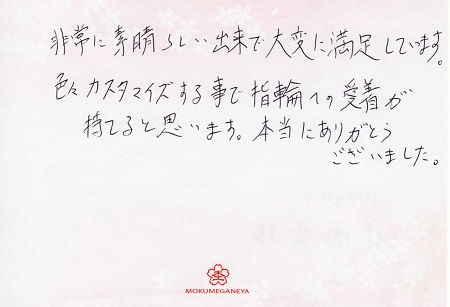 非常に素晴らしい出来で大変に満足しています。
色々カスタマイズする事で指輪への愛着が
持てると思います。本当にありがとう
ございました。
MOKUMEGANEYA